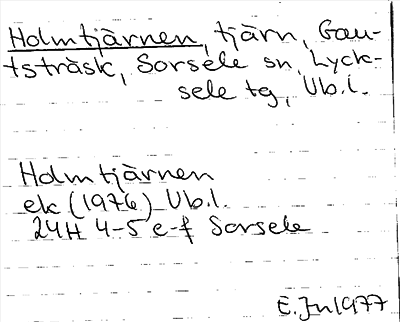 Holmtjärnen, tjärn, Gau-
tsträsk, Sorsele sn, Lyck-
sele tg, Vb.l.
Holmtjärnen
ek (1976) Vb.l.
24H 4-5 e-f Sorsele
E.Jn 1977